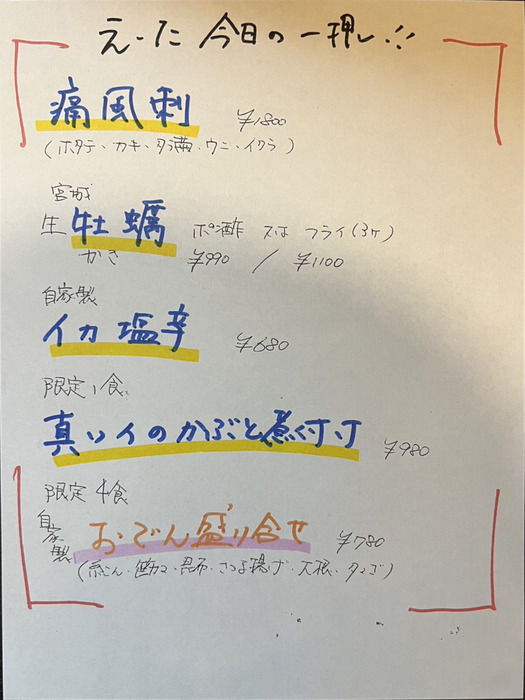 えーた 今日の一押し!!
痛風刺 ¥1800
(ホタテ・カキ・タラ白子・ウニ・イクラ)
宮城
生牡蠣 ポン酢 又は フライ(3ケ)
かき ¥990 / ¥1100
自家製
イカ塩辛 ¥680
限定1食
真ソイのかぶと煮付け ¥980
限定4食
自家製 おでん盛り合せ ¥780
昆布・さつま揚げ・大根・タマゴ)